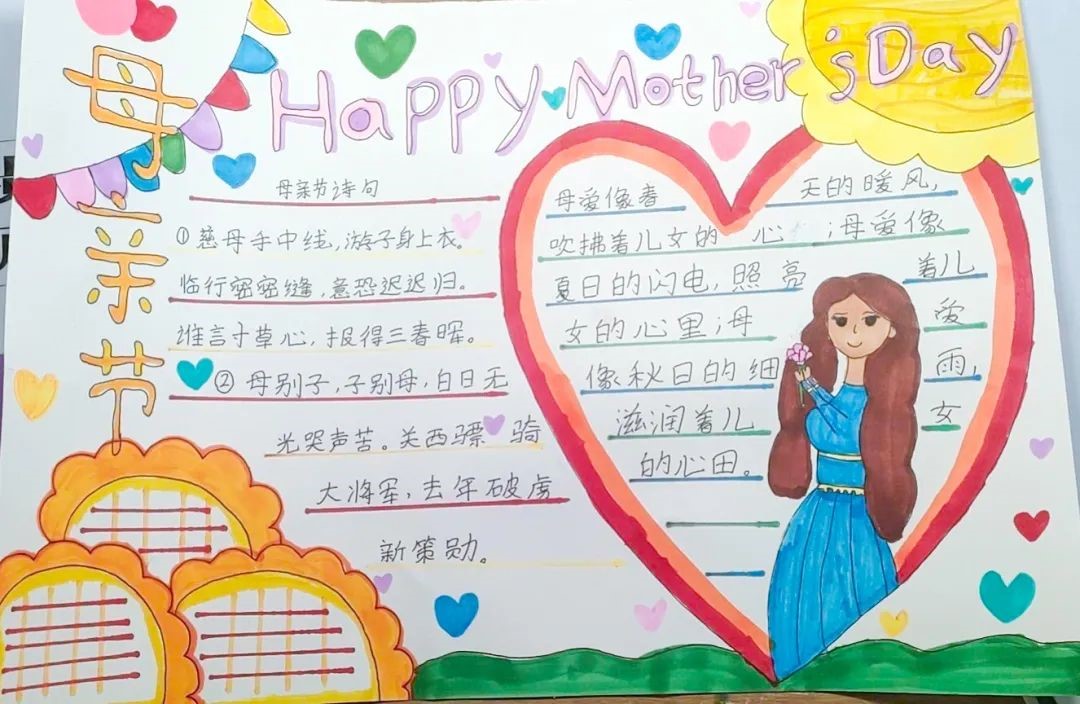 母亲节
Happy Mother's Day
母亲节诗句
①慈母手中线,游子身上衣。
临行密密缝,意恐迟迟归。
谁言寸草心,报得三春晖。
②母别子,子别母,白日无
光哭声苦。关西骠骑
大将军,去年破虏
新策勋。
母爱像春天的暖风,
吹拂着儿女的心;母爱像
夏日的闪电,照亮着儿
女的心里;母爱
像秋日的细雨,
滋润着儿女
的心田。